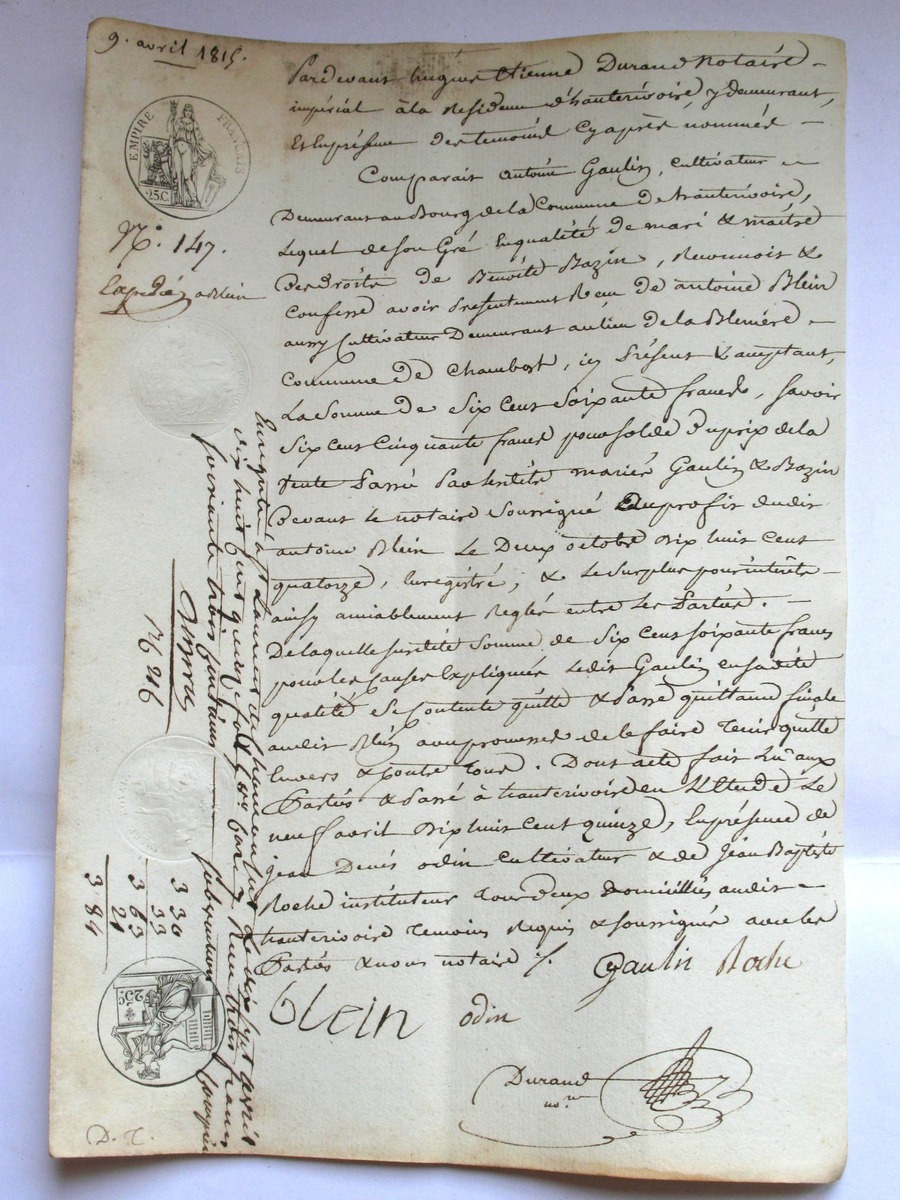 9. avril 1815.
EMPIRE FRANÇAIS
25C
N.° 147.
Expédié a Blein
Pardevant hugues Etienne Durand Notaire
impérial à la Residence d'hauterivoire, y demeurant,
Et En présence des temoins Cyaprès nommés
Comparait Antoine Gaulin, Cultivateur
Demeurant au Bourg de la Commune de hauterivoire,
Lequel de son Gré En qualité de mari & maitre
Des droits de Benoite Bazin, Reconnoit &
Confesse avoir Présentement Recu de antoine Blein
aussy Cultivateur Demeurant au lieu de la Blenière
Commune De Chambost, icy Présent & acceptant,
La Somme de Six Cent Soixante francs, Savoir
Six Cent Cinquante francs pour solde du prix de la
Vente Passée Par lesdits mariés Gaulin & Bazin
Devant le notaire Soussigné Au profit dudit
antoine Blein Le Deux octobre Dix huit Cent
quatorze, Enregistré, & le Surplus pour intérêts
ainsy amiablement Reglés entre les Parties.
De laquelle susdite Somme de Six Cent soixante francs
pour les Causes Expliquées Ledit Gaulin en sadite
qualité Se Contente quitte & Passe quittance finale
audit Blein avec promesse de le faire Tenir quitte
Envers & Contre tous. Dont acte fait Lu aux
Parties & Passé à hauterivoire En L'Etude Le
neuf avril Dix huit Cent quinze, En présence de
jean Denis odin Cultivateur & de Jean Baptiste
Roche instituteur tous deux Domiciliés audit
hauterivoire Temoins Requis & soussignés avec les
Parties & nous notaire ./.
Gaulin Roche
blein odin
Durand
no.re
Enregistré à St Laurent de chamousset le dix sept avril
dix huit Cent quinze fol 100 Reçu trois francs
soixante trois Centimes subvention Comprise
16 216
3 30
33
3 63
21
3 84
25c.
D. C.